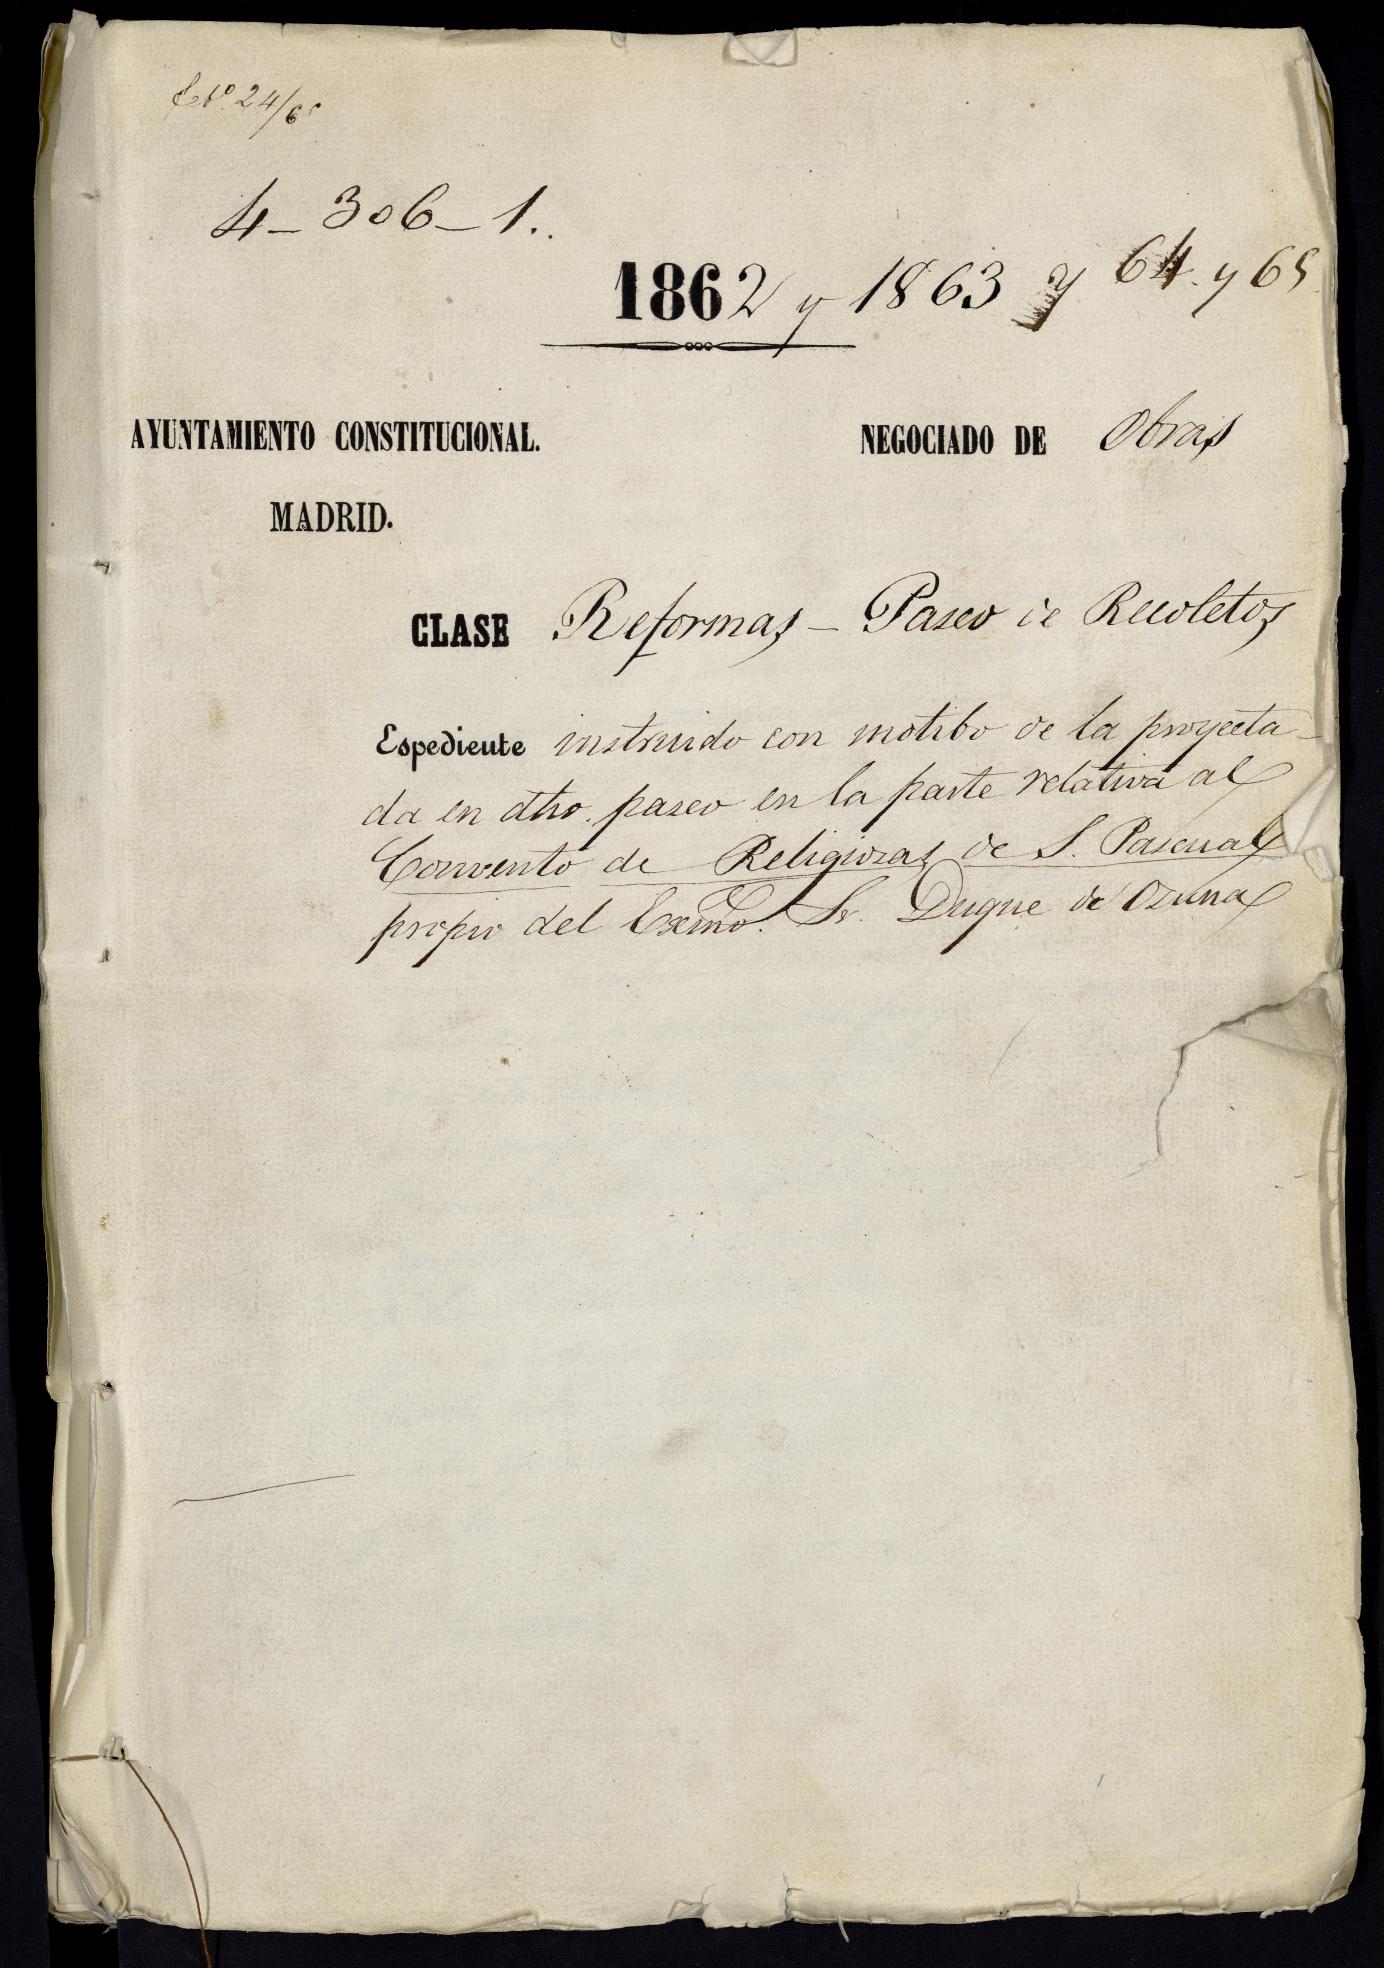 24/65
4-306-1.
1862 y 1863 y 64. y 65
AYUNTAMIENTO CONSTITUCIONAL. NEGOCIADO DE Obras
MADRID.
CLASE Reformas - Paseo de Recoletos
Espediente instruido con motibo de la proyecta-
da en dho. paseo en la parte relativa al
Convento de Religiosas de S. Pascual
propio del Exmo. Sr. Duque de Osuna